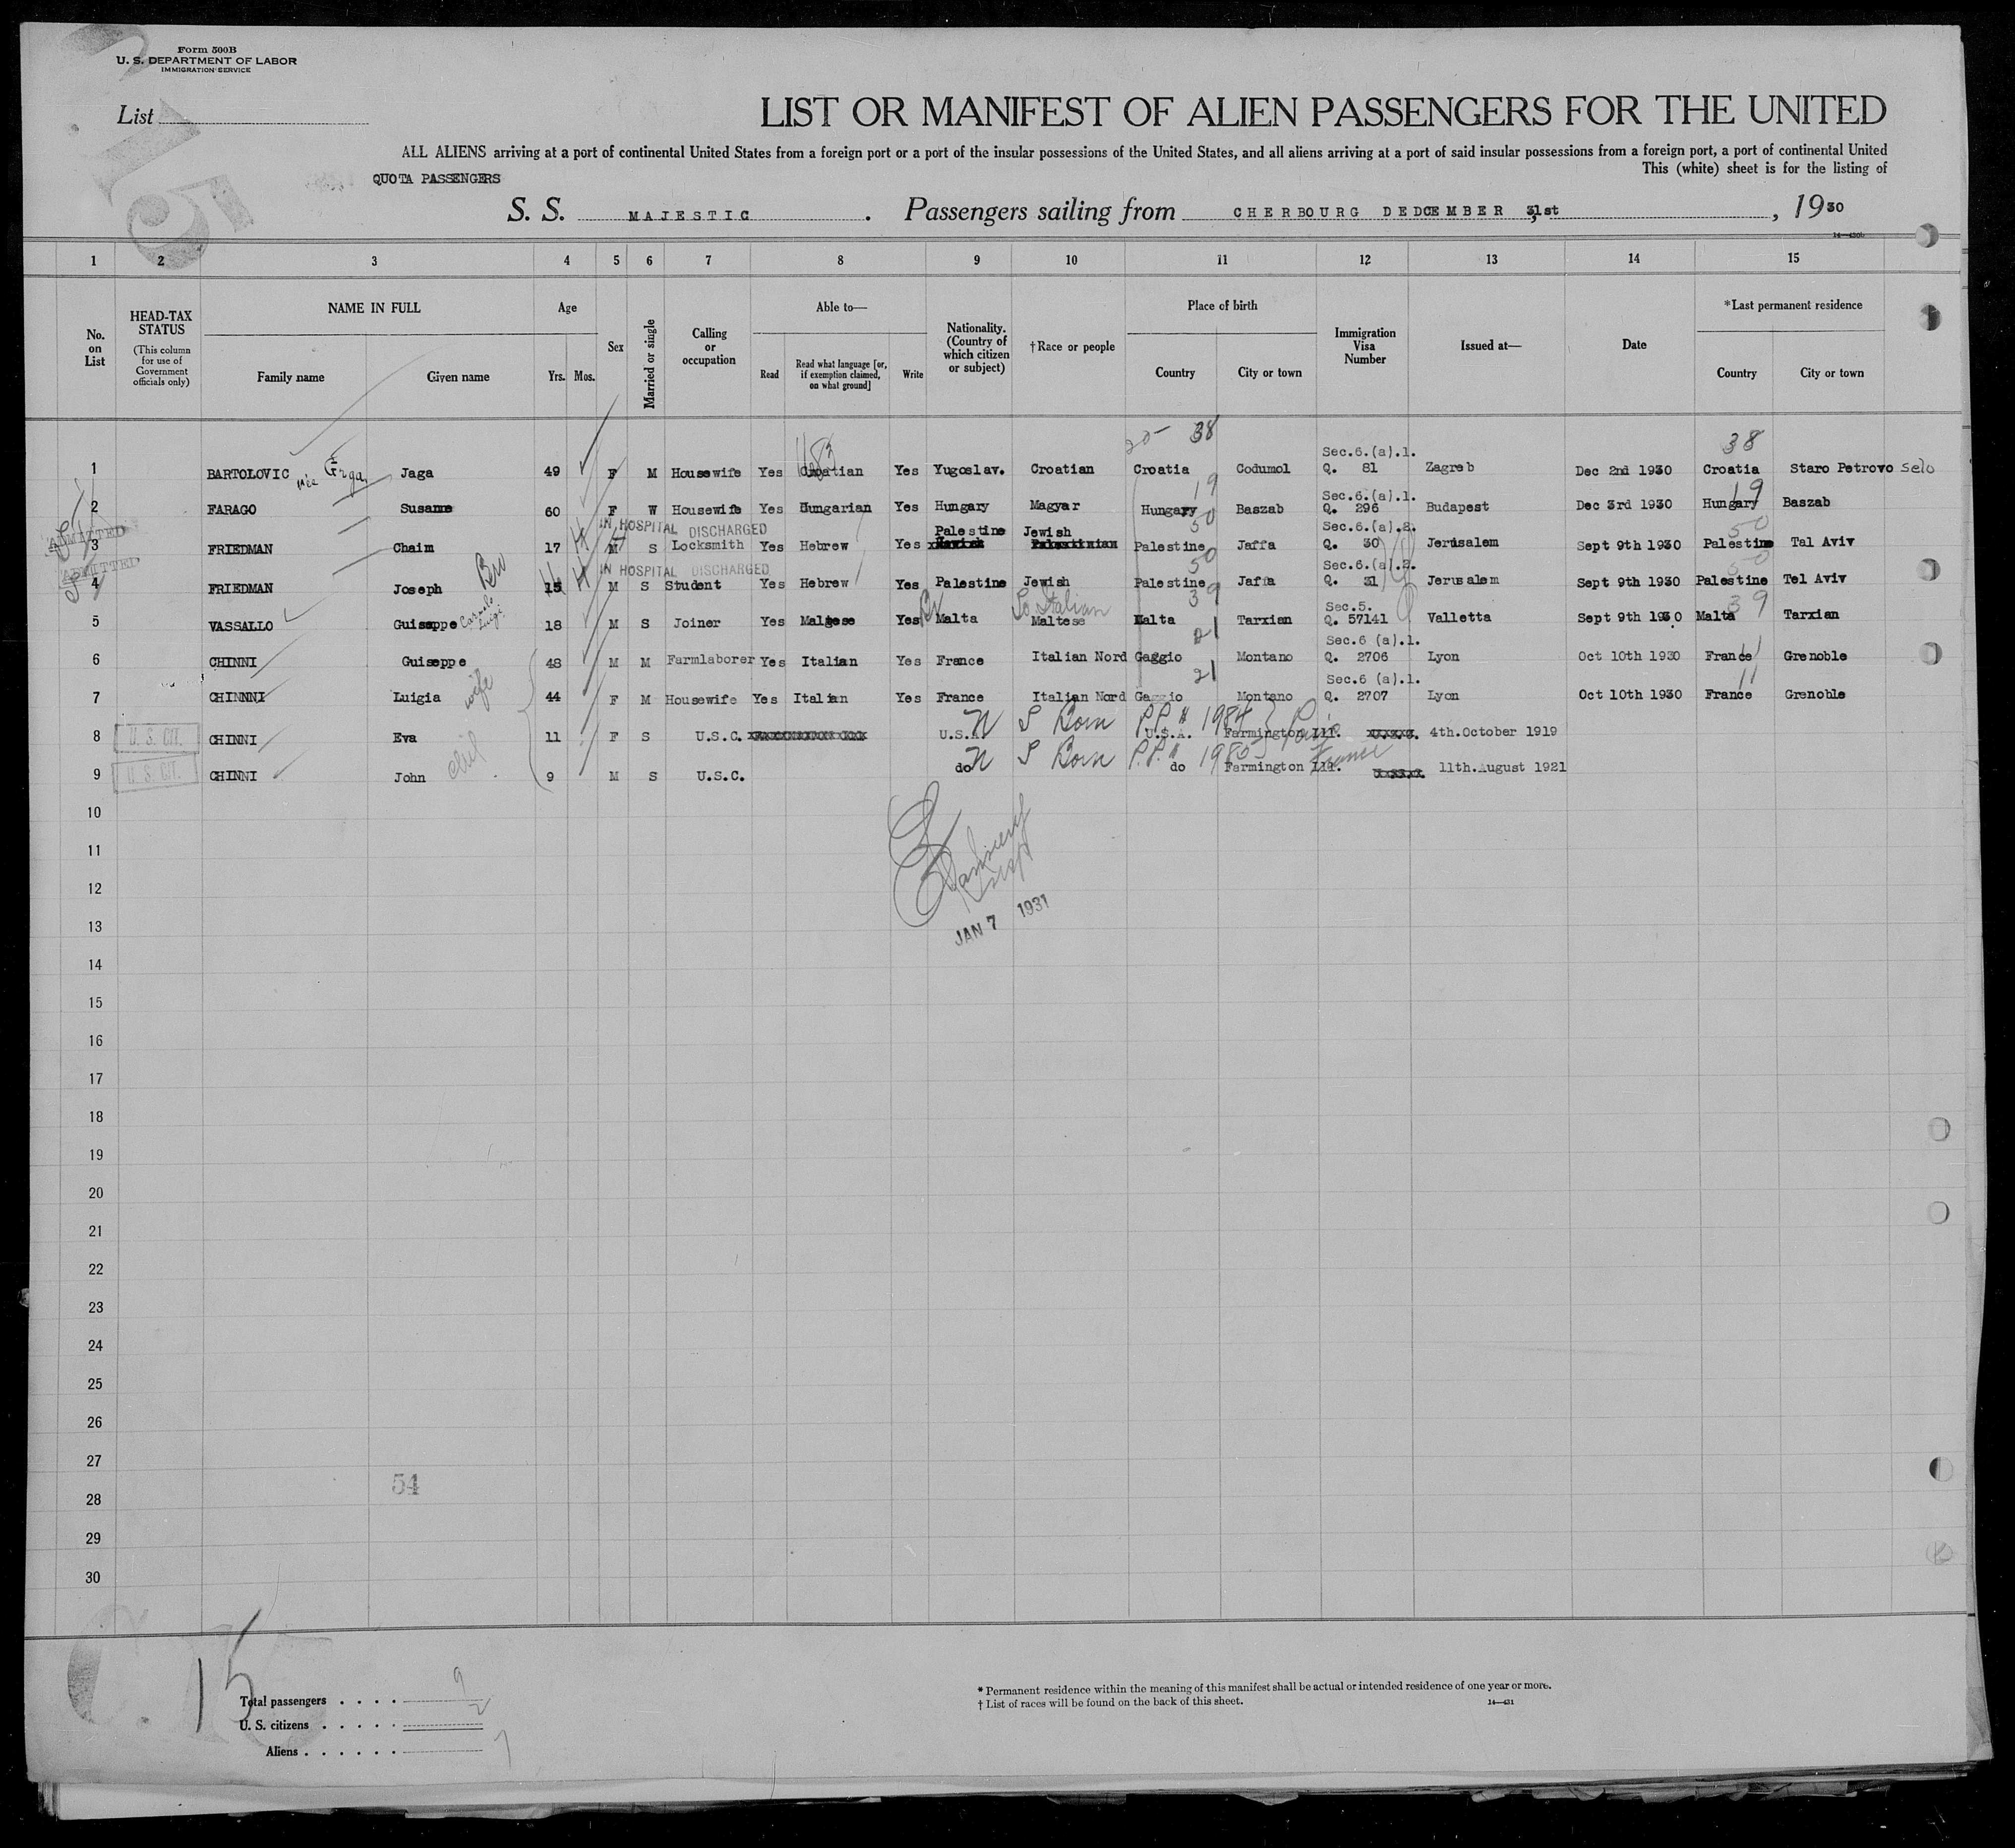 Form 500B
U. S. DEPARTMENT OF LABOR
IMMIGRATION SERVICE
List
LIST OR MANIFEST OF ALIEN PASSENGERS FOR THE UNITED
ALL ALIENS arriving at a port of continental United States from a foreign port or a port of the insular possessions of the United States, and all aliens arriving at a port of said insular possessions from a foreign port, a port of continental United
This (white) sheet is for the listing of
QUOTA PASSENGERS
S. S. MAJESTIC. Passengers sailing from CHERBOURG DEDCEMBER 31st, 1930
14—430b
1 2 3 4 5 6 7 8 9 10 11 12 13 14 15
No. on List
HEAD-TAX STATUS (This column for use of Government officials only)
NAME IN FULL Family name Given name
Age Yrs. Mos.
Sex
Married or single
Calling or occupation
Able to— Read Read what language [or, if exemption claimed, on what ground] Write
Nationality. (Country of which citizen or subject)
†Race or people
Place of birth Country City or town
Immigration Visa Number
Issued at—
Date
*Last permanent residence Country City or town
20- 38 38
1 BARTOLOVIC née Grga, Jaga 49 F M Housewife Yes Croatian Yes Yugoslav. Croatian Croatia Codumol Sec.6.(a).1. Q. 81 Zagreb Dec 2nd 1930 Croatia Staro Petrovo Selo
19 19
2 FARAGO Susanne 60 F W Housewife Yes Hungarian Yes Hungary Magyar Hungary Baszab Sec.6.(a).1. Q. 296 Budapest Dec 3rd 1930 Hungary Baszab
ADMITTED IN HOSPITAL DISCHARGED 50 50
3 FRIEDMAN Chaim 17 M S Locksmith Yes Hebrew Yes Palestine Jewish Palestinian Palestine Jaffa Sec.6.(a).2. Q. 30 Jerusalem Sept 9th 1930 Palestine Tal Aviv
ADMITTED IN HOSPITAL DISCHARGED 50 50
4 FRIEDMAN Joseph Bro 15 M S Student Yes Hebrew Yes Palestine Jewish Palestine Jaffa Sec.6.(a).2. Q. 31 Jerusalem Sept 9th 1930 Palestine Tel Aviv
Br So. Italian 39 39
5 VASSALLO Guiseppe Carmelo Luigi 18 M S Joiner Yes Maltese Yes Malta Maltese Malta Tarxian Sec.5. Q. 57141 Valletta Sept 9th 1930 Malta Tarxian
21 11
6 CHINNI Guiseppe 48 M M Farmlaborer Yes Italian Yes France Italian Nord Gaggio Montano Sec.6 (a).1. Q. 2706 Lyon Oct 10th 1930 France Grenoble
21 11
7 CHINNNI Luigia wife 44 F M Housewife Yes Italian Yes France Italian Nord Gaggio Montano Sec.6 (a).1. Q. 2707 Lyon Oct 10th 1930 France Grenoble
N S Born P.P. # 1984 Paris
8 U.S. CIT. CHINNI Eva 11 F S U.S.C. U.S.A. U.S.A. Farmington Ill. 4th.October 1919
N S Born P.P. # 1985 France
9 U.S. CIT. CHINNI John 9 M S U.S.C. do do Farmington Ill. 11th.August 1921
10
11
12
JAN 7 1931
13
14
15
16
17
18
19
20
21
22
23
24
25
26
27
54
28
29
30
15
Total passengers . . . . 9
U. S. citizens . . . . . 2
Aliens . . . . . . 7
* Permanent residence within the meaning of this manifest shall be actual or intended residence of one year or more.
† List of races will be found on the back of this sheet.
14—431